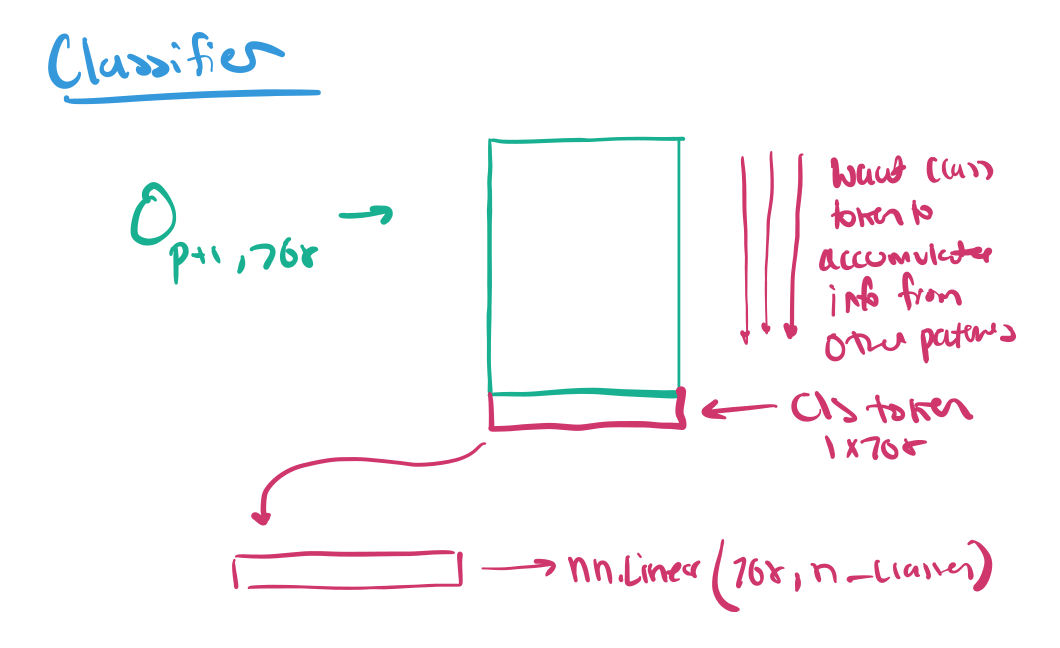 Classifier
O p+1, 768
Want class
token to
accumulate
info from
other patches
Cls token
1 x 768
nn.Linear(768, n_classes)